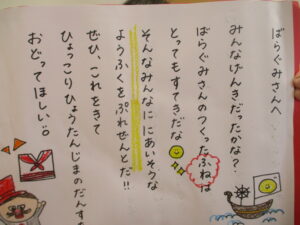 ばらぐみさんへ
みんなげんきだったかな?
ばらぐみさんのつくったふねは
とってもすてきだな
そんなみんなににあいそうな
ようふくをぷれぜんとだ!!
ぜひ、これをきて
ひょっこりひょうたんじまのだんすを
おどってほしい。